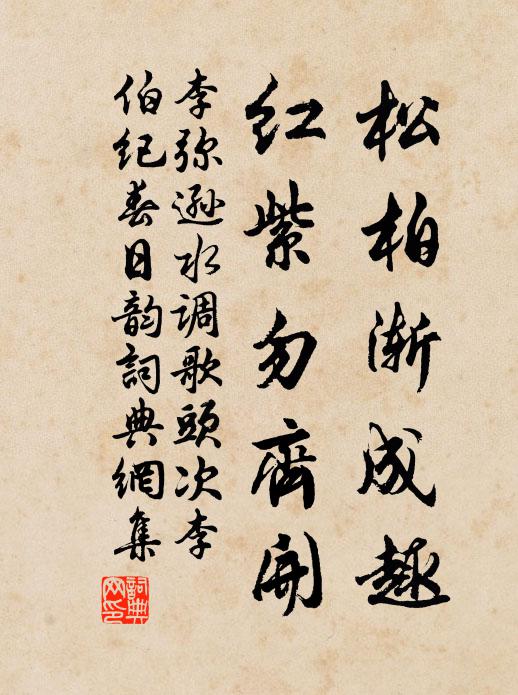 松柏渐成趣
红紫勿齊開
李弥遜水调歌頭次李
伯纪春日韵詞典網集
詞典網印